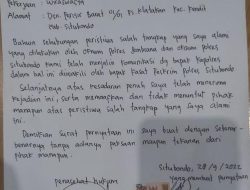 Pekerjaan : Wiraswasta
Alamat : Dsn Pesisir Barat 01/01 Ds. Klatakan Kec. Kendit
Kab. Situbondo
Bahwa sehubungan peristiwa salah tangkap yang saya alami
yang dilakukan oleh oknum Polres Bondowoso dan oknum Polres
Situbondo kami telah menjalin komunikasi dg bapak Kapolres
dalam hal ini diwakili oleh bapak Kasat Reskrim Polres Situbondo
Selanjutnya atas kesadaran penuh saya telah menerima
kejadian ini, serta memaafkan dan tidak menuntut pihak
manapun atas peristiwa salah tangkap yang saya alami
ini.
Demikian surat pernyataan ini saya buat dengan sebenar-
benarnya tanpa adanya paksaan maupun tekanan dari
pihak manapun.
Situbondo, 28/9/2022
Penasehat hukum
yang membuat pernyataan